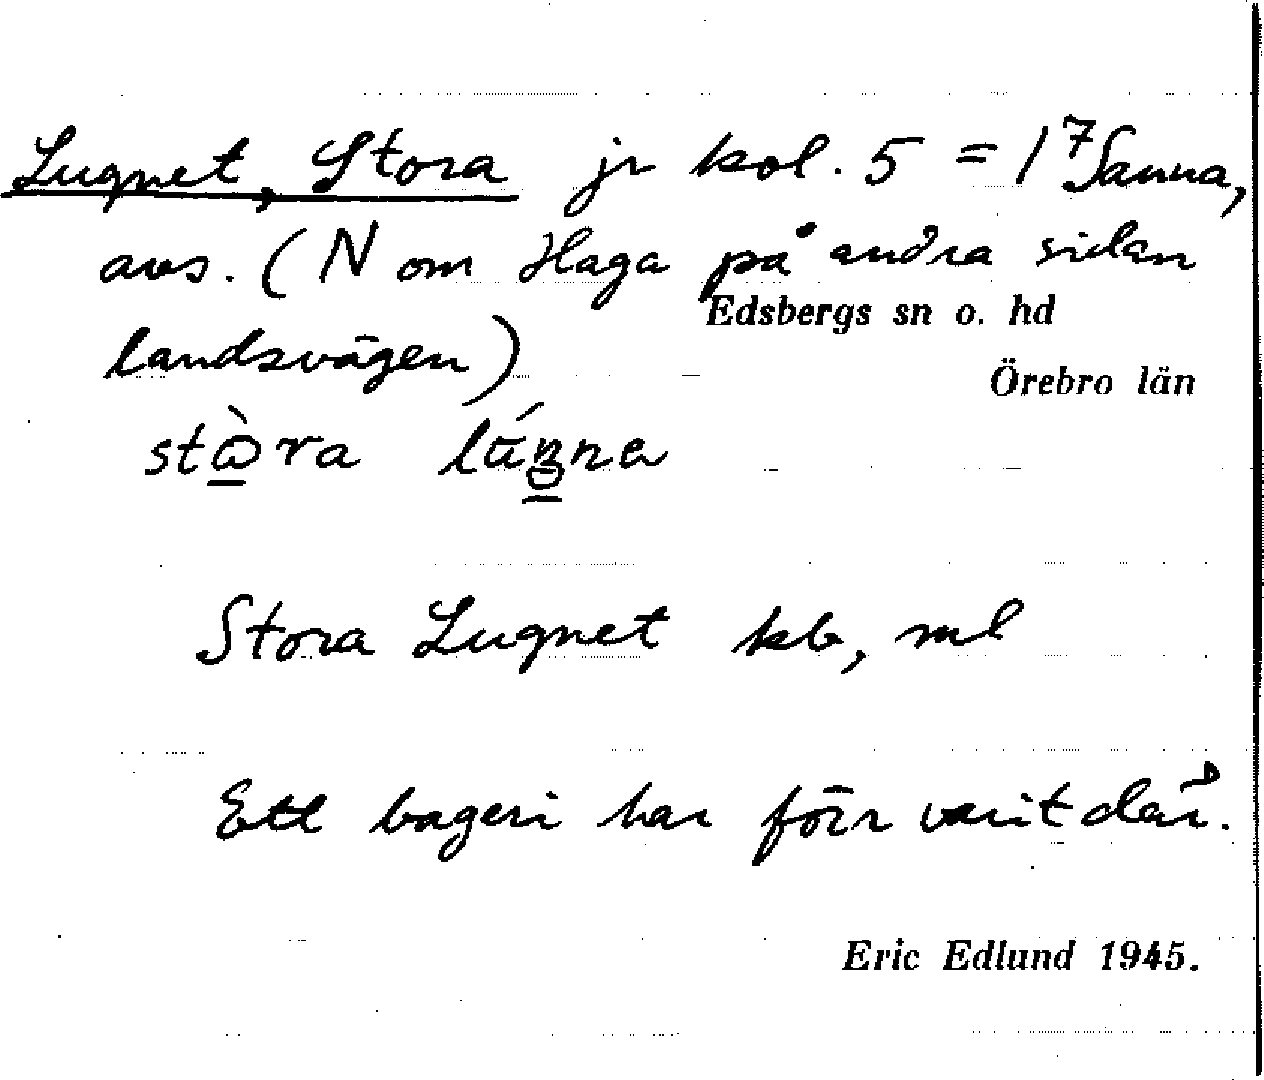 Lugnet, Stora jr kol. 5 = 1⁷ Sanna,
avs. (N om Haga på andra sidan
Edsbergs sn o. hd
landsvägen)
Örebro län
Stora Lugnet kb, ml
Ett bageri har förr varit där.
Eric Edlund 1945.